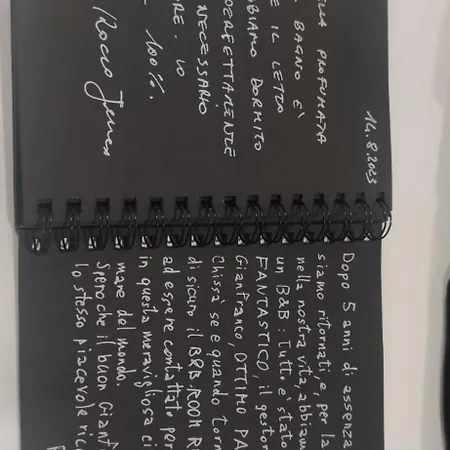 14.8.2023
LLA PROFUMATA
BAGNO E'
E IL LETTO
BBIAMO DORMITO
PERFETTAMENTE
NECESSARIO
RE. LO
100%.
Rocco
Dopo 5 anni di assenza
siamo ritornati, e, per la
nella nostra vita, abbiam
un B&B: tutto è stato
FANTASTICO, il gestor
Gianfranco, OTTIMO PA
Chissà se e quando torn
di sicuro il B&B, ROOM R
ad essere contattato per
in questa meravigliosa ci
mare del mondo.
Spero che il buon Gianf
lo stesso piacevole rico